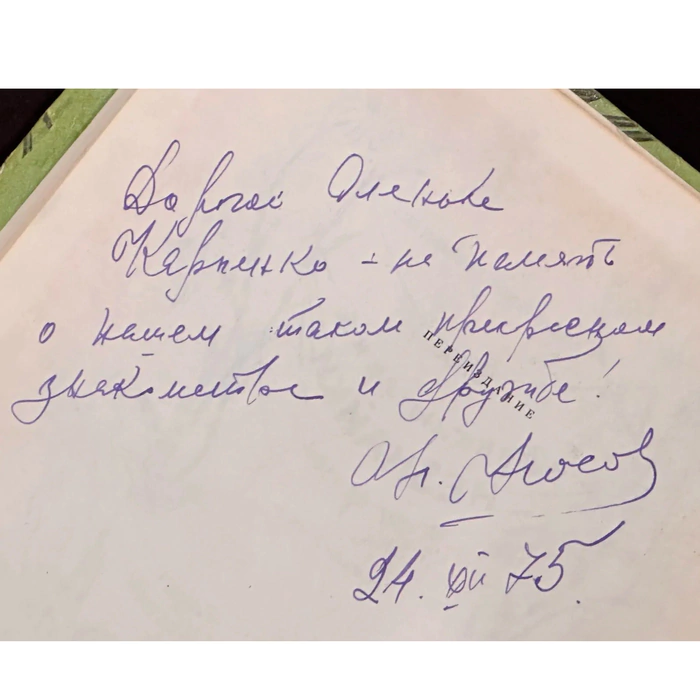 Дорогой Оленьке
Карпенко – на память
о нашем таком прекрасном
знакомстве и дружбе!
ПЕРЕИЗДАНИЕ
24. XII 75.